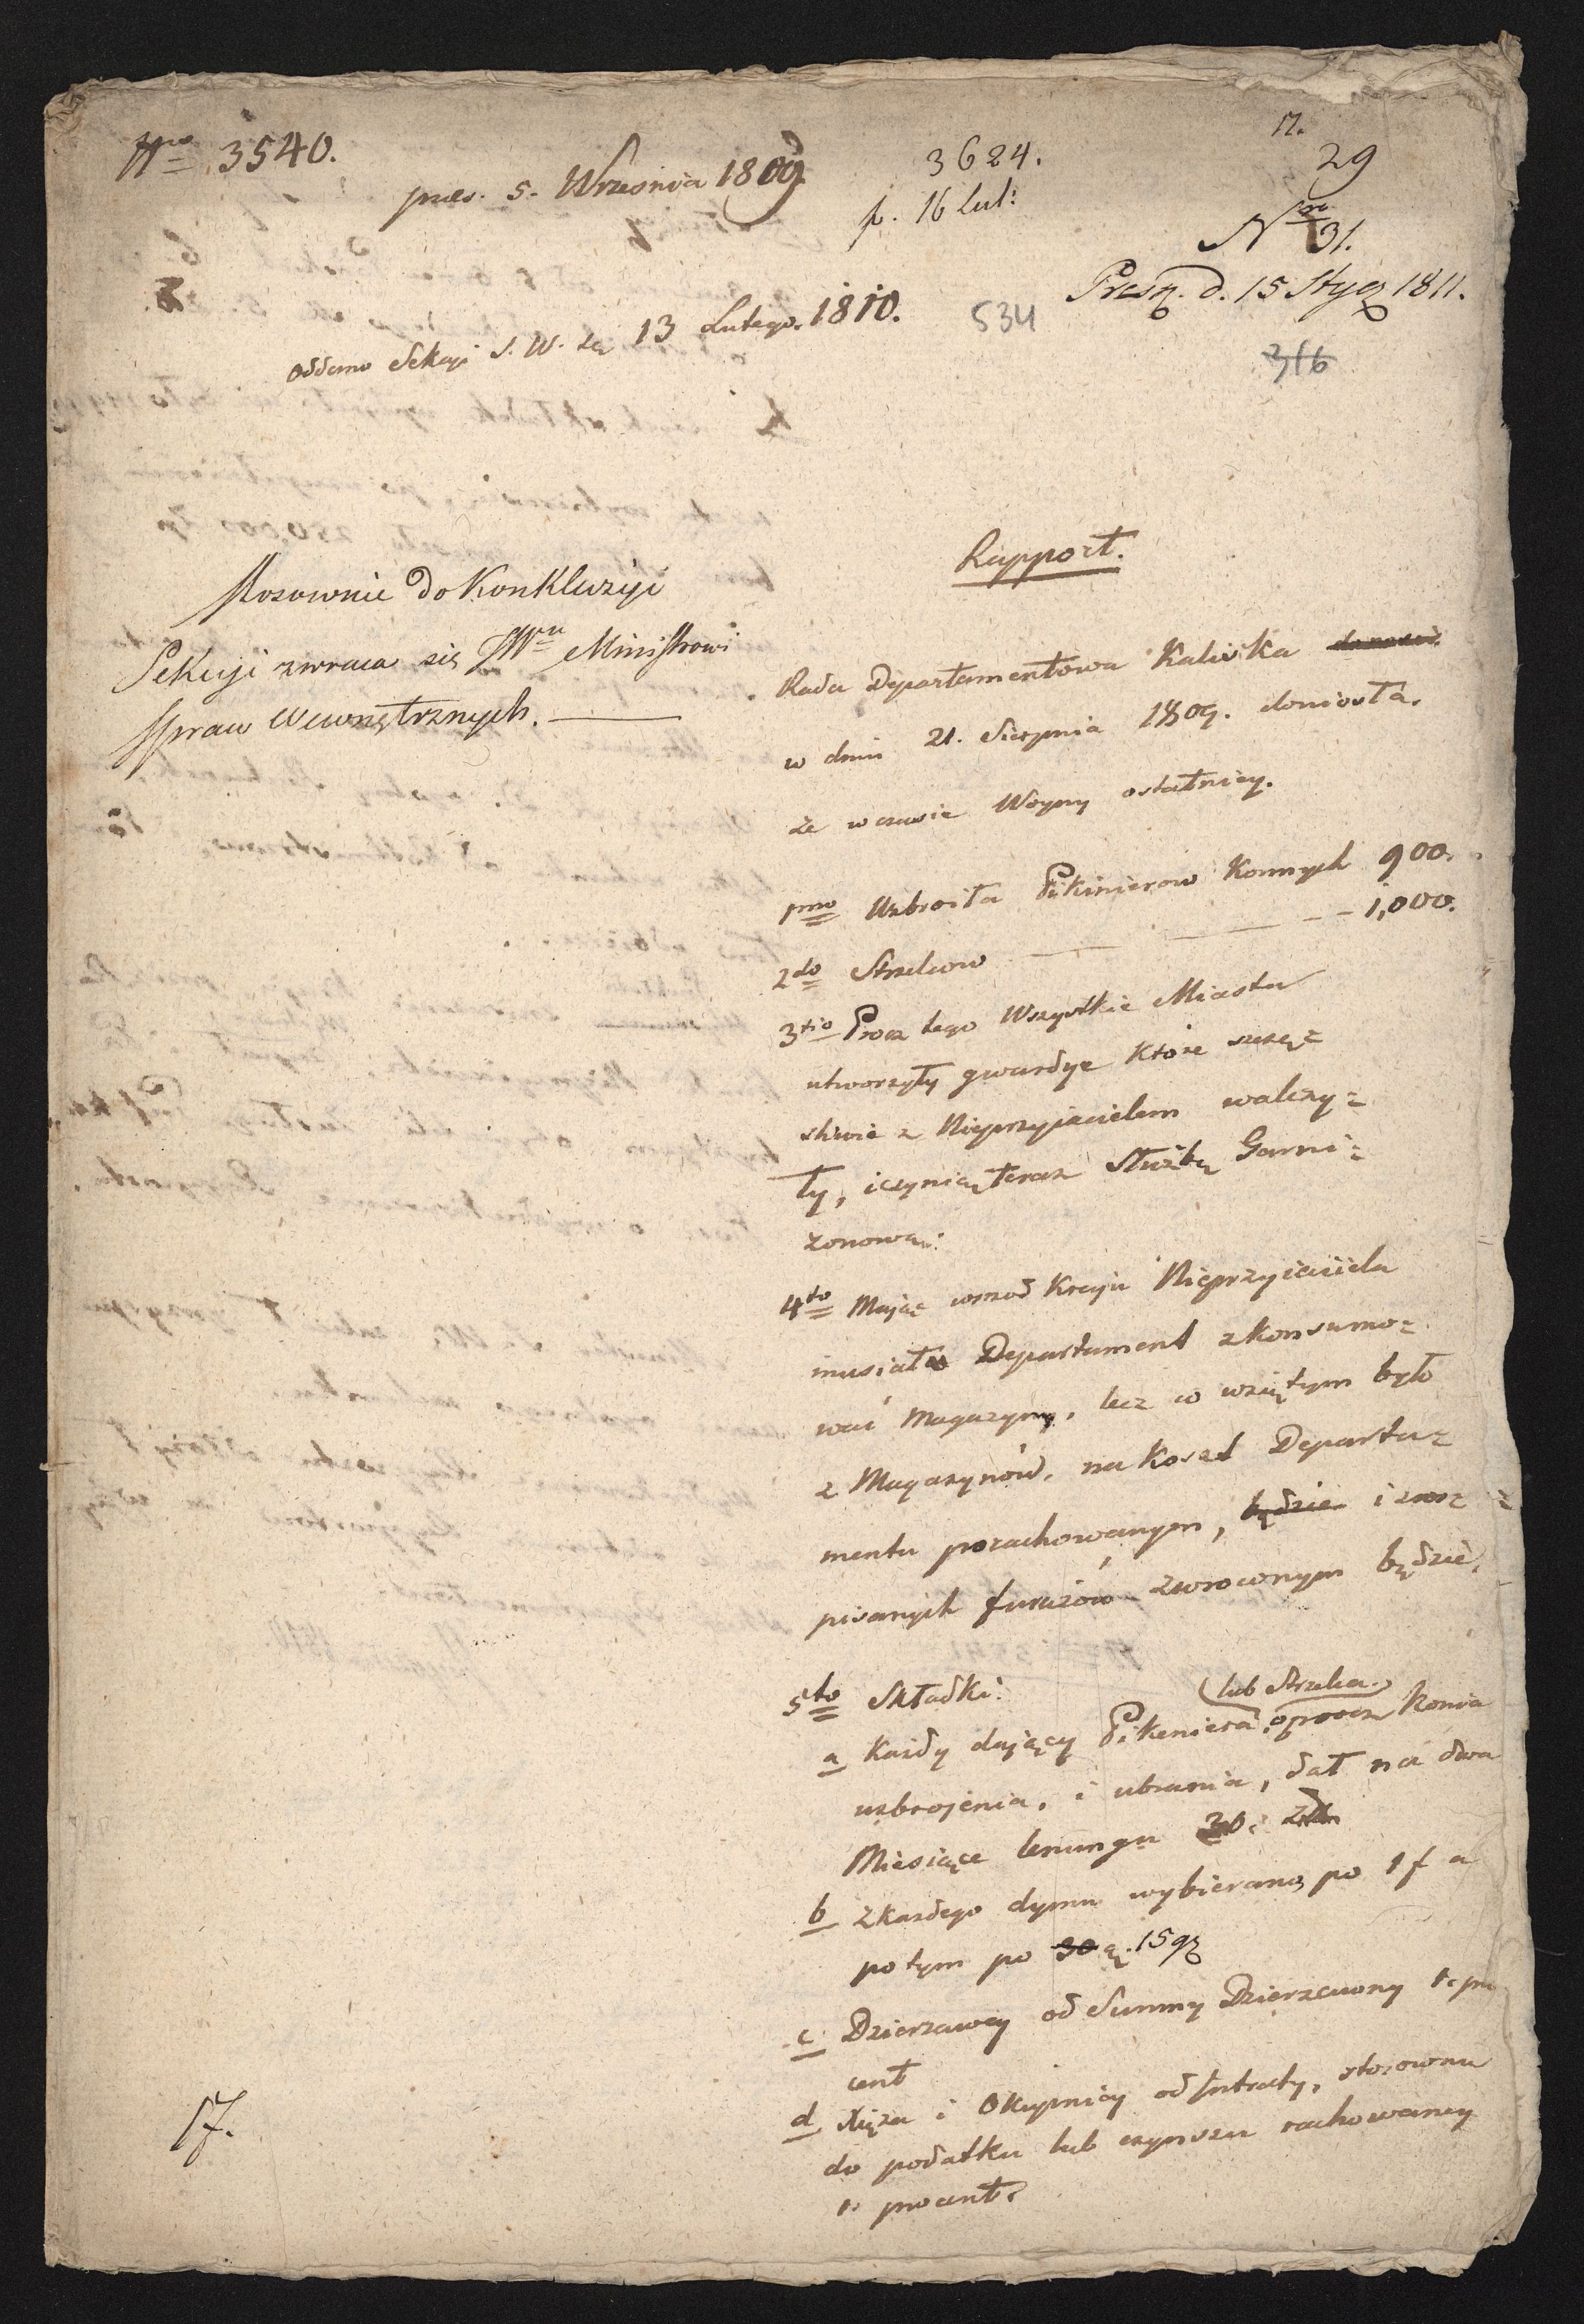 Nro 3540.
prez. 5. Wrzesnia 1809
3624.
p. 16 lut:
17.
29
Nro 31.
Presz. d. 15 Stycz 1811.
oddano Sekcyi S. W. 13 Lutego. 1810.
534
316
Stosownie do Konkluzyi
Sekcyi zwraca się JWu Ministrowi
Spraw Wewnętrznych.
Rapport.
Rada Departamentowa Kaliska donosi
w dniu 21. Sierpnia 1809. doniosła.
że w czasie Woyny ostatniey.
pmo Uzbroiła Pikinierow Konnych 900.
2do Strzelcow — — — 1,000.
3tio Procz tego Wszystkie Miasta
utworzyły gwardye które szczę=
sliwie z Nieprzyjacielem walczy=
ły, i czynią teraz Służbę Garni=
zonową:
4to Mając wsrzod Kraju Nieprzyiaciela
musiał Departament zkonsumo=
wać Magazyny, lecz co wziętym było
z Magazynów, na Koszt Departa=
mentu porachowanym, będzie i zroz=
pisanych furażów zwrocnym będzie.
5to Składki:
a Każdy dający Pikeniera (lub Strzelca) oprocz Konia
uzbrojenia, i ubrania, dał na dwa
Miesiące lenungu 30:
b Zkażdego dymu wybierano po 1 f a
potym po 30 15 gr
c Dzierzawcy od Summy Dzierzawny 1. pro
cent
d Xięża i Okupnicy od Intraty, stosownu
do podatku lub czynszu rachowaney
1. procent.
17.